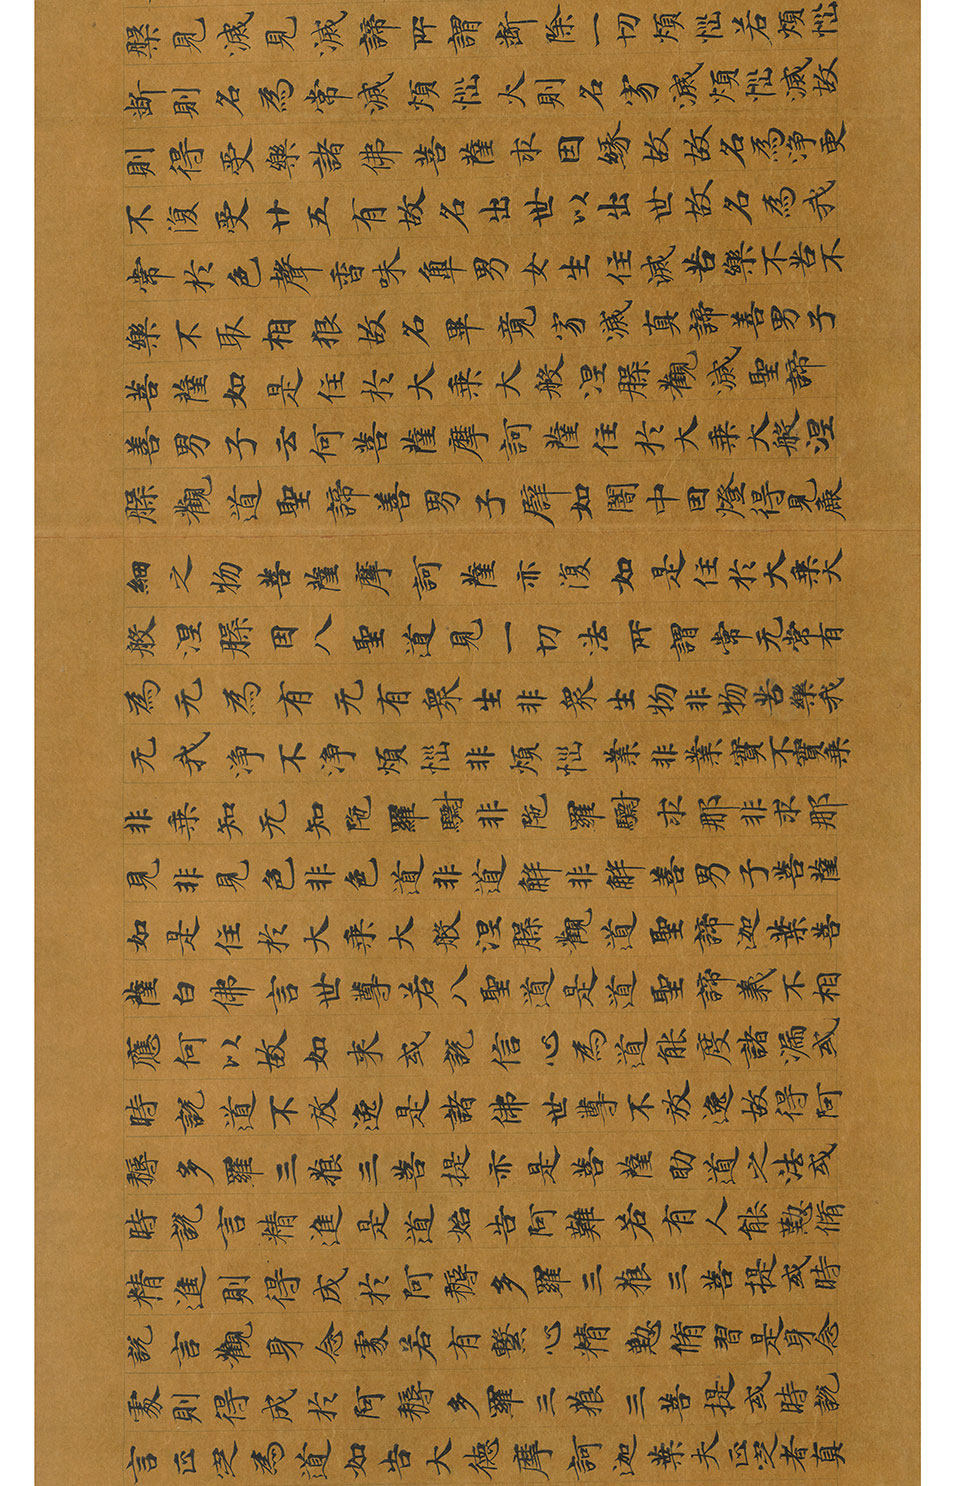 槃見滅見滅諦所謂斷除一切煩惱若煩惱
斷則名為常滅煩惱火則名寂滅煩惱滅故
則得受樂諸佛菩薩求因緣故故名為淨更
不復受廿五有故名出世以出世故名為我
常於色聲香味觸男女生住滅苦樂不苦不
樂不取相狠故名畢竟寂滅真諦善男子
菩薩如是住於大乘大般涅槃觀滅聖諦
善男子云何菩薩摩訶薩住於大乘大般涅
槃觀道聖諦善男子譬如闇中因燈得見麁
細之物菩薩摩訶薩亦復如是住於大乘大
般涅槃因八聖道見一切法所謂常无常有
為无為有无有衆生非衆生物非物苦樂我
无我淨不淨煩惱非煩惱業非業實不實乘
非乘知无知陁羅驃非陁羅驃求那非求那
見非見色非色道非道解非解善男子菩薩
如是住於大乘大般涅槃觀道聖諦迦葉菩
薩白佛言世尊若八聖道是道聖諦義不相
應何以故如来或說信心為道能度諸漏或
時說道不放逸是諸佛世尊不放逸故得阿
耨多羅三藐三菩提亦是菩薩助道之法或
時說言精進是道始告阿難若有人能懃脩
精進則得成於阿耨多羅三藐三菩提或時
說言觀身念處若有繫心精懃脩習是身念
處則得成於阿耨多羅三藐三菩提或時說
言正定為道如告大德摩訶迦葉夫正定者真